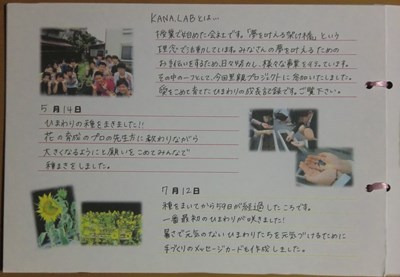 KANA.LABとは…
授業で始めた会社です。「夢を叶える架け橋」という
理念で活動しています。みなさんの夢を叶えるための
お手伝いをするため、日々努力し、様々な事業を行っています。
その中の一つとして、今回黒鏡プロジェクトに参加いたしました。
愛をこめて育てたひまわりの成長記録です。ご覧下さい。
5月14日
ひまわりの種をまきました!!
花の育成のプロの先生方に教わりながら
大きくなるようにと願いをこめてみんなで
種まきをしました。
7月12日
種をまいてから59日が経過したころです。
一番最初のひまわりが咲きました!
暑さで元気のないひまわりたちを元気づけるために
手づくりのメッセージカードも作成しました。